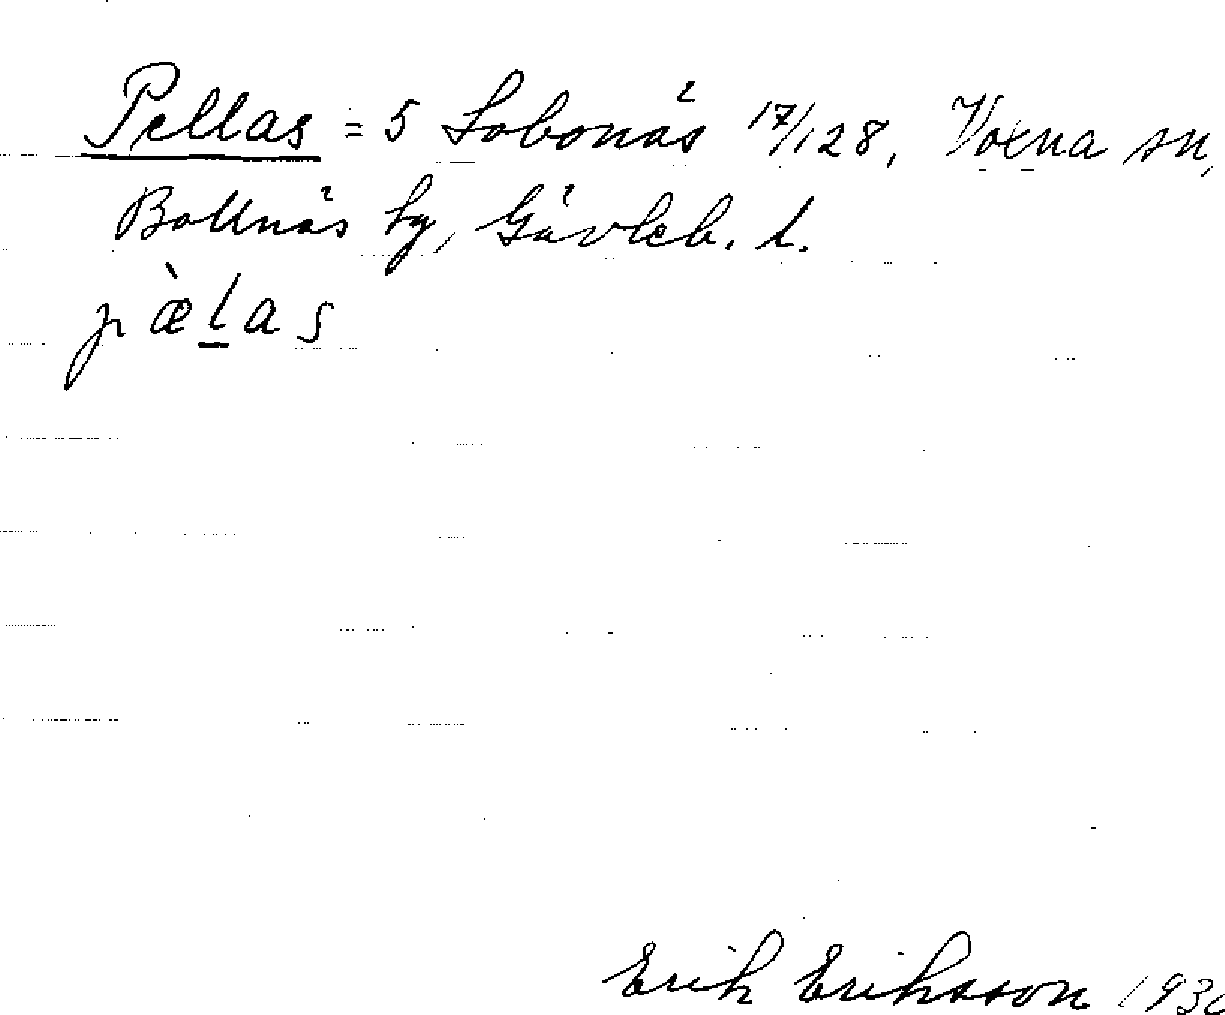 Pellas = 5 Lobonäs 17/128, Voxna sn,
Bollnäs tg, Gävleb. l.
p æ̀ l̲ a s
Erik Eriksson 193